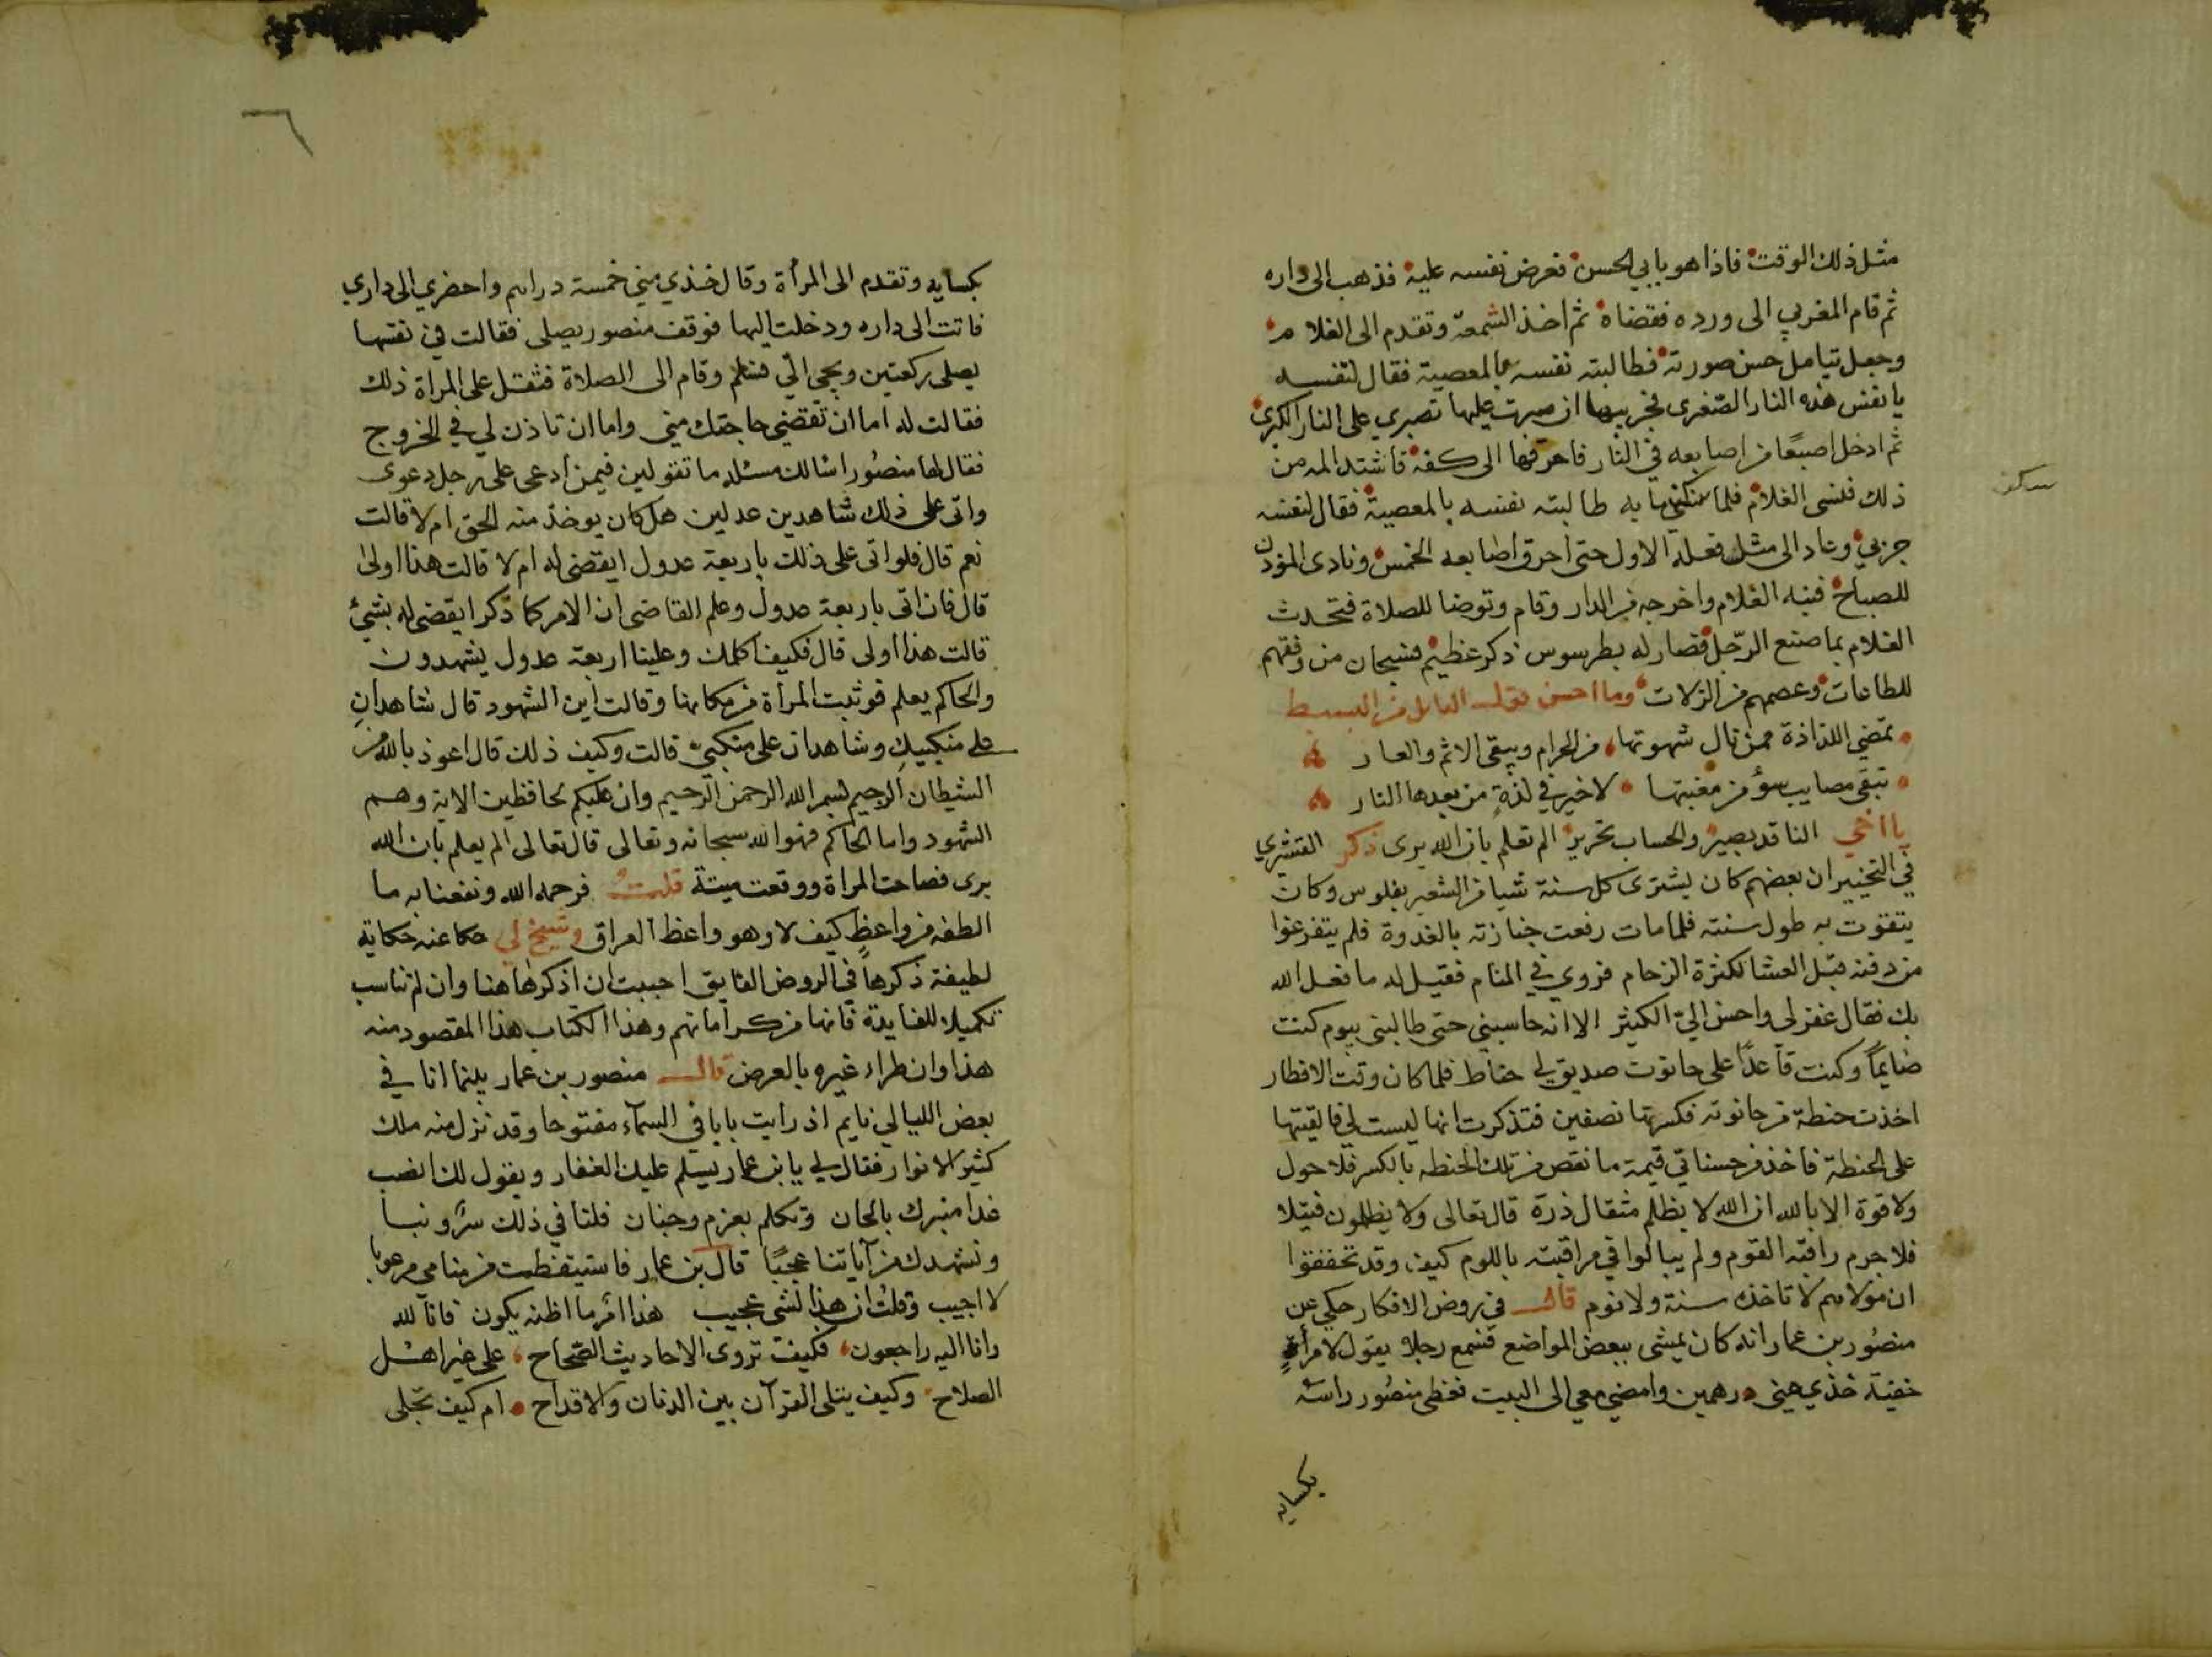 مثل ذلك الوقت فاذا هو بابي الحسن فعرض نفسه عليه فذهب الى داره
ثم قام المغربي الى ورده فقضاه ثم اخذ الشمعة وتقدم الى الغلام
وجعل يتامل حسن صورته فطالبته نفسه بالمعصية فقال لنفسه
يا نفس هذه النار الصغرى فجربيها ان صبرت عليها تصبري على النار الكبرى
ثم ادخل اصبعًا من اصابعه في النار فاحرقها الى كفه فاشتد المه من
ذلك فنسى الغلام فلما سكن مابه طالبته نفسه بالمعصية فقال لنفسه
سكن
جربي وعاد الى مثل فعله الاول حتى احرق اصابعه الخمس ونادى المؤذن
للصباح فنبه الغلام واخرجه من الدار وقام وتوضا للصلاة فتحدث
الغلام بما صنع الرجل فصار له بطرسوس ذكر عظيم فسبحان من وفقهم
للطاعات وعصمهم من الزلات وما احسن قول القائل من البسيط
تمضي اللذاذة ممن نال شهوتها من الحرام ويبقى الاثم والعار
تبقى مصايب سوء من مغبتها لا خير في لذةٍ من بعدها النار
يا اخي الناقد بصير والحساب تحرير الم تعلم بان الله يرى ذكر القشيري
في التحبير ان بعضهم كان يشترى كل سنة شيا من الشعير بفلوس وكان
يتقوت به طول سنته فلما مات رفعت جنازته بالغدوة فلم يتفرغوا
من دفنه قبل العشا لكثرة الزحام فروي في المنام فقيل له ما فعل الله
بك فقال غفر لي واحسن اليّ الكثير الا انه حاسبني حتى طالبني بيوم كنت
صايمًا وكنت قاعدًا على حانوت صديق لي حناط فلما كان وقت الافطار
اخذت حنطة من حانوته فكسرتها نصفين فتذكرت انها ليست لي فالقيتها
على الحنطة فاخذ من حسناتي قيمة ما نقص من تلك الحنطه بالكسر فلا حول
ولا قوة الا بالله ان الله لا يظلم مثقال ذرة قال تعالى ولا يظلمون فتيلا
فلا جرم راقبه القوم ولم يبالوا في مراقبته باللوم كيف وقد تحققوا
ان مولاهم لا تاخذه سنة ولا نوم قال في روض الافكار حكي عن
منصور بن عمار انه كان يمشى ببعض المواضع فسمع رجلا يقول لامرأةٍ
خفية خذي مني درهمين وامضي معي الى البيت فغطى منصور راسه
بكسايه
بكسايه وتقدم الى المرأة وقال خذي مني خمسة دراهم واحضري الى داري
فاتت الى داره ودخلت اليها فوقف منصور يصلى فقالت في نفسها
يصلى ركعتين ويجي الّي فسلم وقام الى الصلاة فثقل على المراة ذلك
فقالت له اما ان تقضي حاجتك مني واما ان تاذن لي في الخروج
فقال لها منصور اسالك مسئله ما تقولين فيمن ادعى على رجل دعوى
واتى على ذلك شاهدين عدلين هل كان يوخذ منه الحق ام لا قالت
نعم قال فلو اتى على ذلك باربعة عدول ايقضى له ام لا قالت هذا اولى
قال فان اتى باربعة عدول وعلم القاضى ان الامر كما ذكر ايقضى له بشئ
قالت هذا اولى قال فكيف اكلمك وعلينا اربعة عدول يشهدون
والحاكم يعلم فوثبت المرأة من مكانها وقالت اين الشهود قال شاهدان
على منكبيك وشاهدان على منكبيّ قالت وكيف ذلك قال اعوذ بالله من
الشيطان الرجيم بسم الله الرحمن الرحيم وان عليكم لحافظين الاية وهم
الشهود واما الحاكم فهو الله سبحانه وتعالى قال تعالى الم يعلم بان الله
يرى فصاحت المراة ووقعت ميتة قلت فرحمه الله ونفعنا به ما
الطفه من واعظٍ كيف لا وهو واعظ العراق وشيخ لي حكا عنه حكاية
لطيفة ذكرها في الروض الفايق احببت ان اذكرها هنا وان لم تناسب
تكميلا للفايدة فانها من كراماتهم وهذا الكتاب هذا المقصود منه
هذا وان طراء غيره بالعرض قال منصور بن عمار بينما انا في
بعض الليالي نايم اذ رايت بابا في السمآء مفتوحا وقد نزل منه ملك
كثير الانوار فقال لي يابن عمار يسلم عليك الغفار ويقول لك انصب
غدا منبرك بالحان وتكلم بعزم وجنان فلنا في ذلك سرّ ونبا
ونشهدك من آياتنا عجبًا قال بن عمار فاستيقظت من منامي مرعوبا
لا اجيب وقلت ان هذا لشى عجيب هذا امر ما اظنه يكون فانا لله
وانا اليه راجعون فكيف تروى الاحاديث الصحاح على غير اهل
الصلاح وكيف يتلى القرآن بين الدنان والاقداح ام كيف تجلى